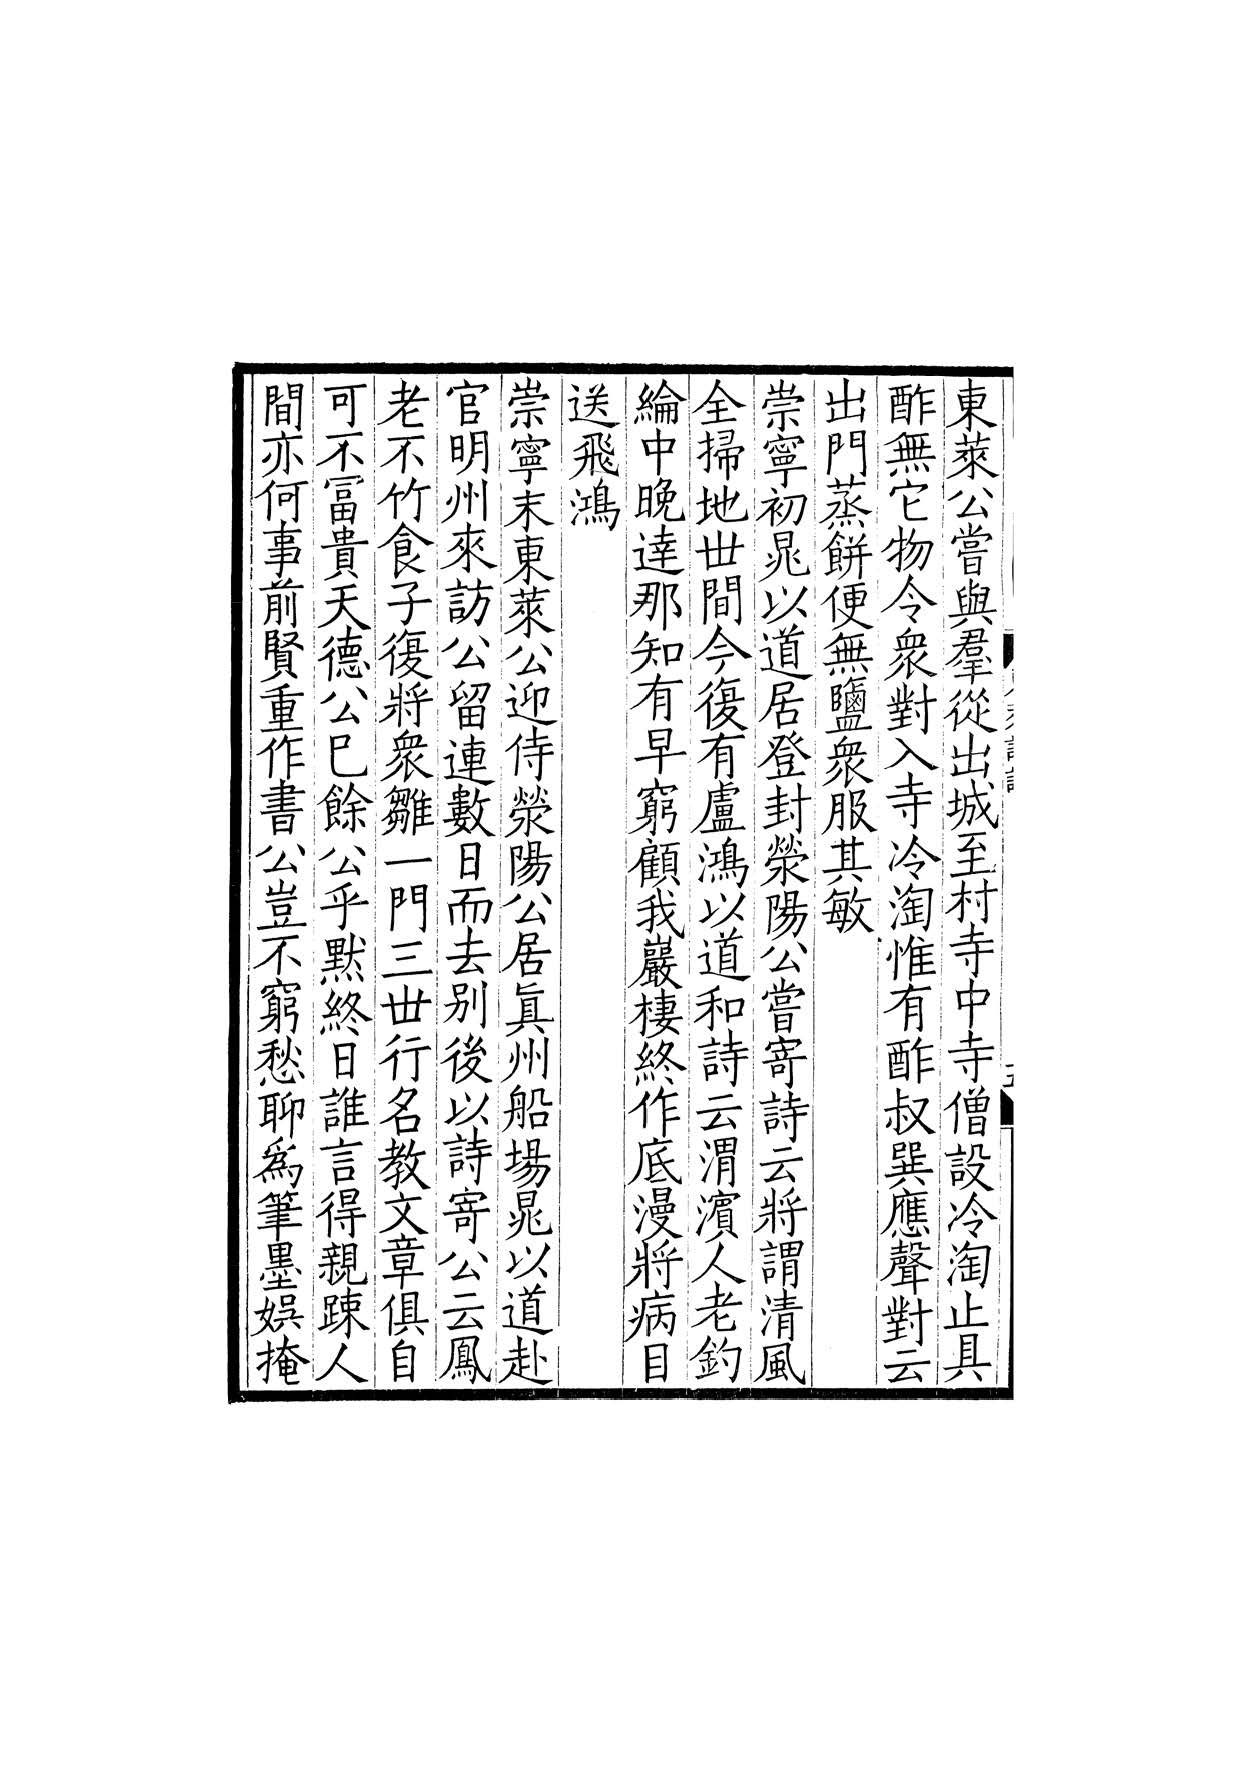 東萊公嘗與羣從出城至村寺中寺僧設冷淘止具
酢無它物令衆對入寺冷淘惟有酢叔巽應聲對云
出門蒸餅便無鹽衆服其敏
崇寧初晁以道居登封滎陽公嘗寄詩云將謂清風
全掃地世間今復有盧鴻以道和詩云渭濱人老釣
綸中晚達那知有早窮顧我巖棲終作底漫將病目
送飛鴻
崇寧末東萊公迎侍滎陽公居眞州船場晁以道赴
官明州來訪公留連數日而去别後以詩寄公云鳳
老不竹食子復將衆雛一門三世行名教文章俱自
可不冨貴天德公巳餘公乎默終日誰言得親踈人
間亦何事前賢重作書公豈不窮愁聊爲筆墨娯掩